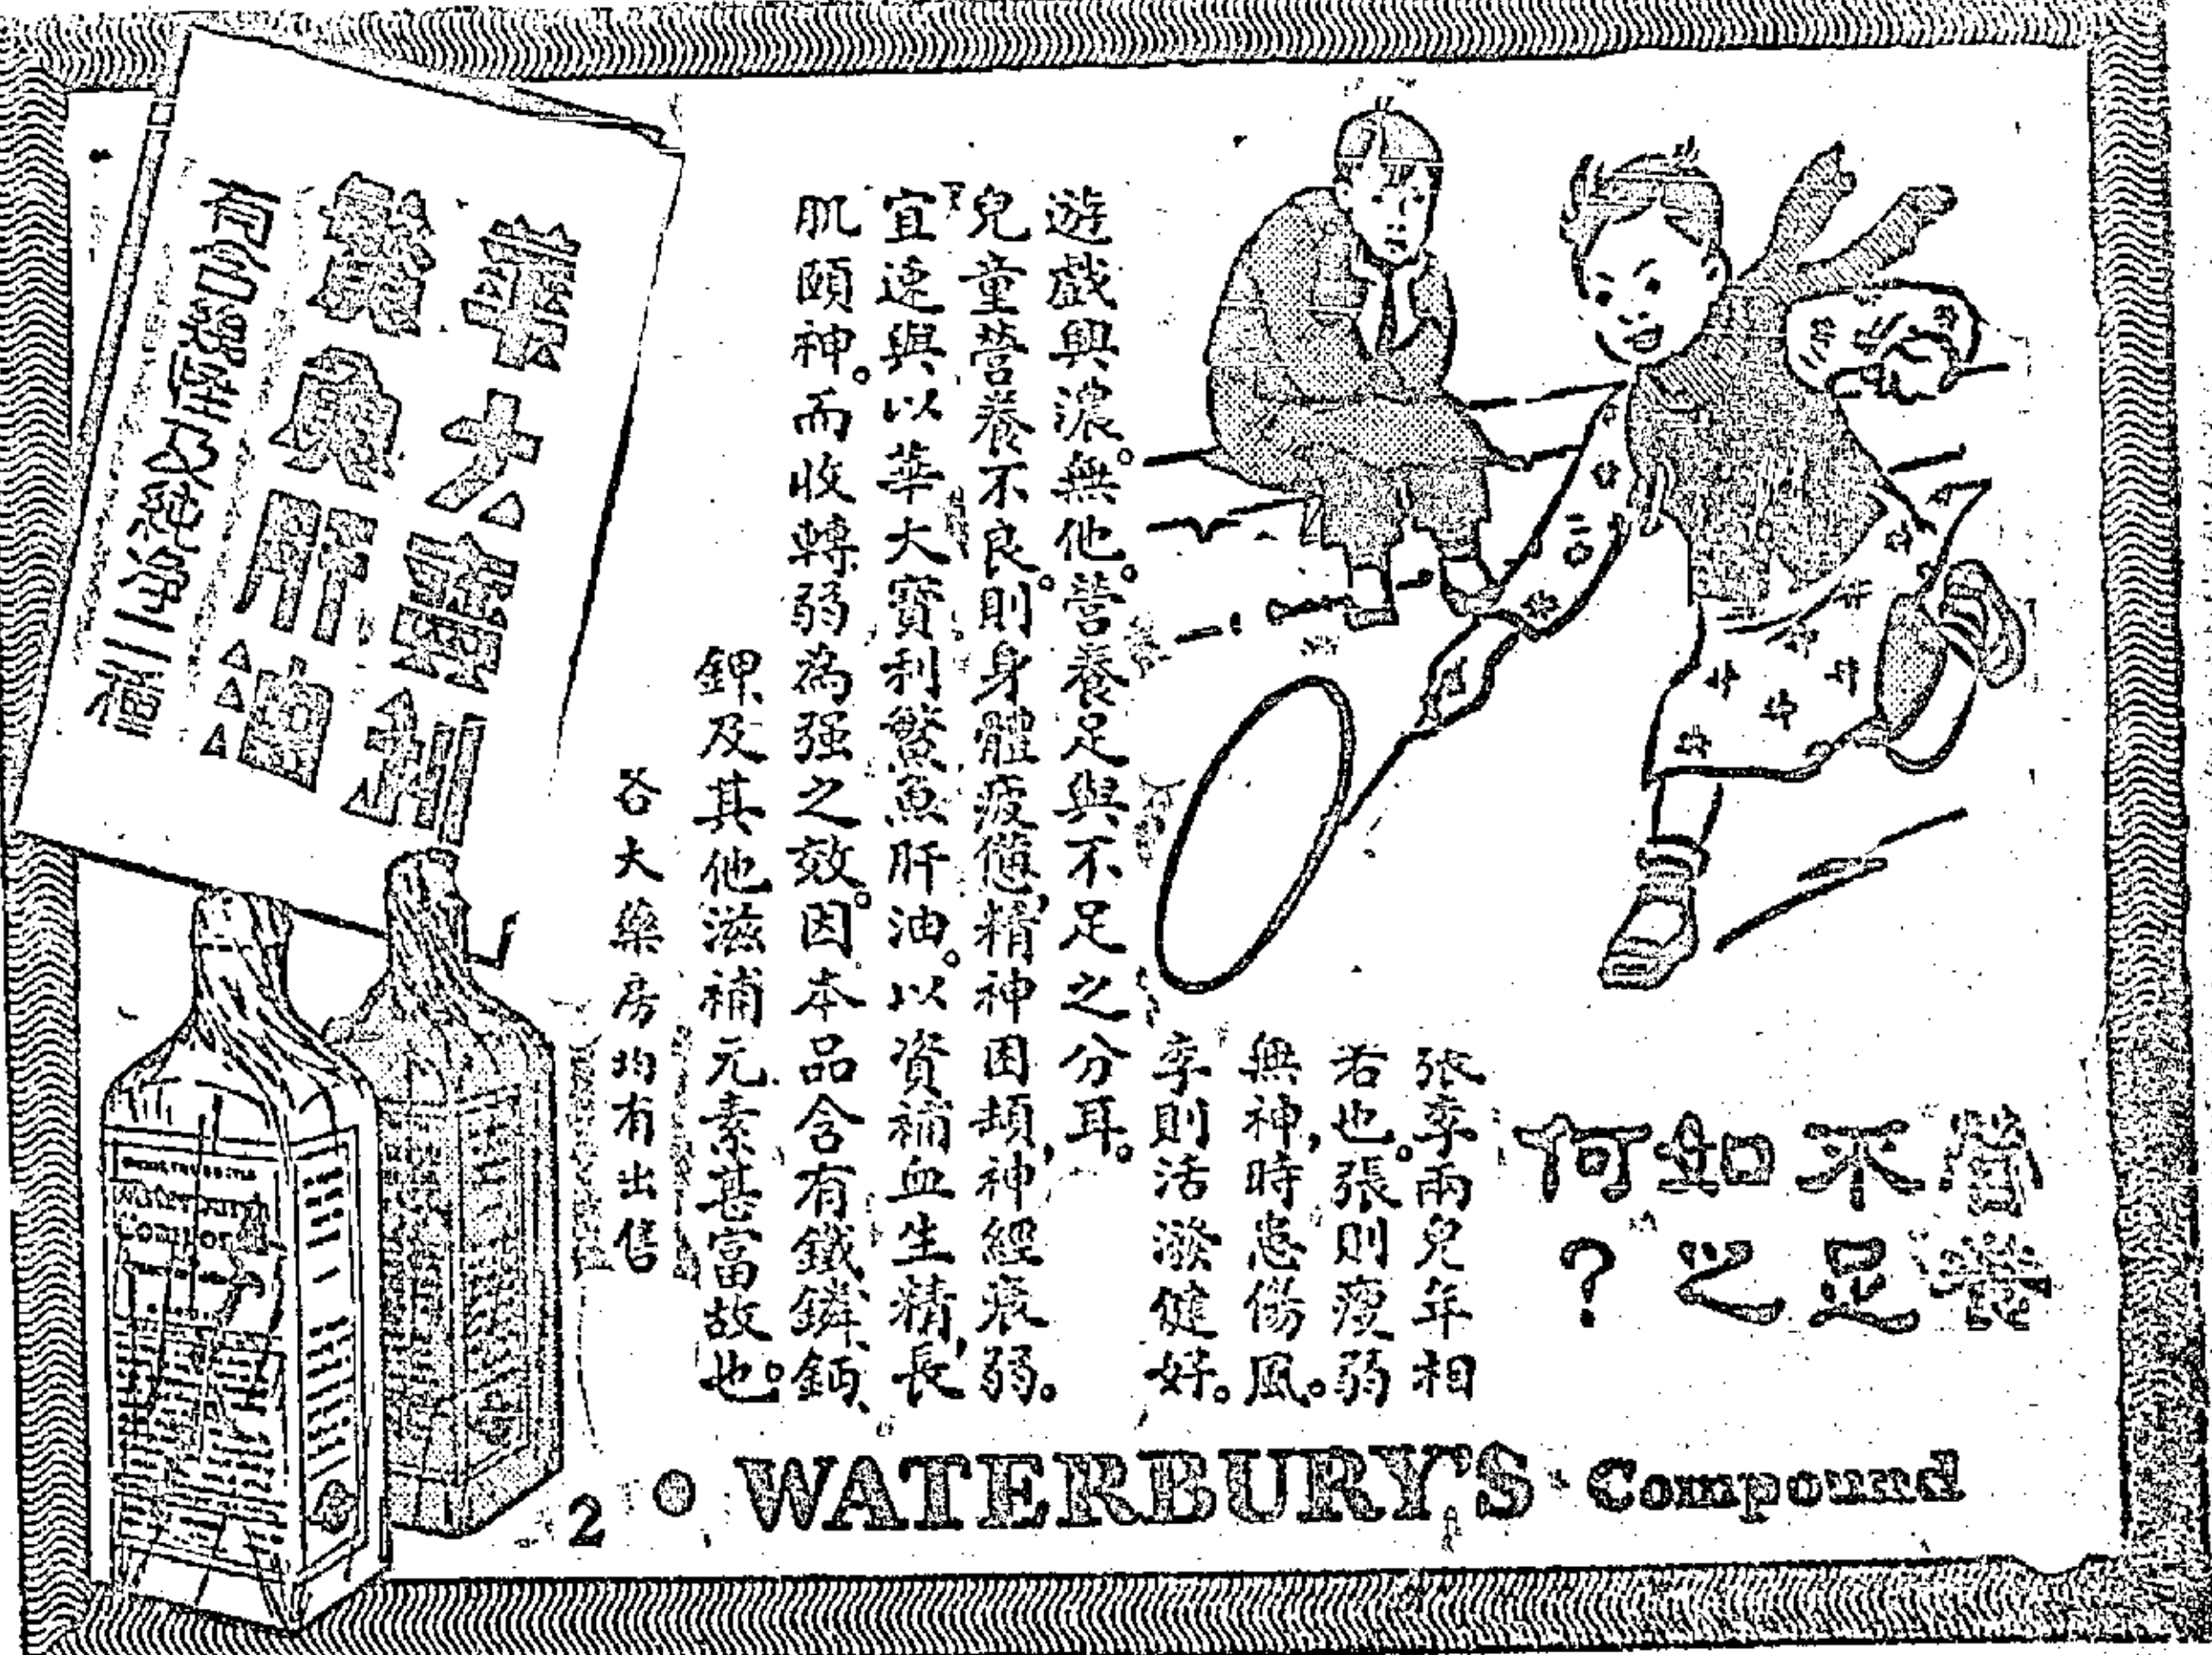 營養
不足
如之
何?
張李兩兒年相
若也。張則瘦弱
無神,時患傷風。
李則活潑健好。
遊戲興濃。無他。營養足與不足之分耳。
兒童營養不良。則身體疲憊,精神困頓,神經衰弱。
宜速與以華大寶利鰵魚肝油。以資補血生精,長
肌頤神。而收轉弱為强之效。因本品含有鐵、鏻、鈣、
鉀及其他滋補元素甚富故也。
各大藥房均有出售
華大寶利
鰵魚肝油
有 及純淨二種
2 • WATERBURY'S Compound